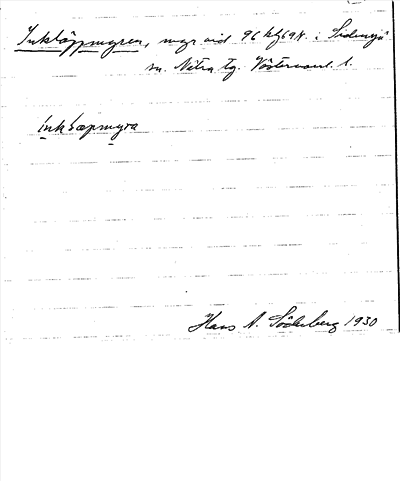 Inktäppmyren, myr vid 96 kfg9k. i Sidensjö
sn. Nätra tg. Västernorrl. l.
inktæpmyra
Hans A. Söderberg 1930